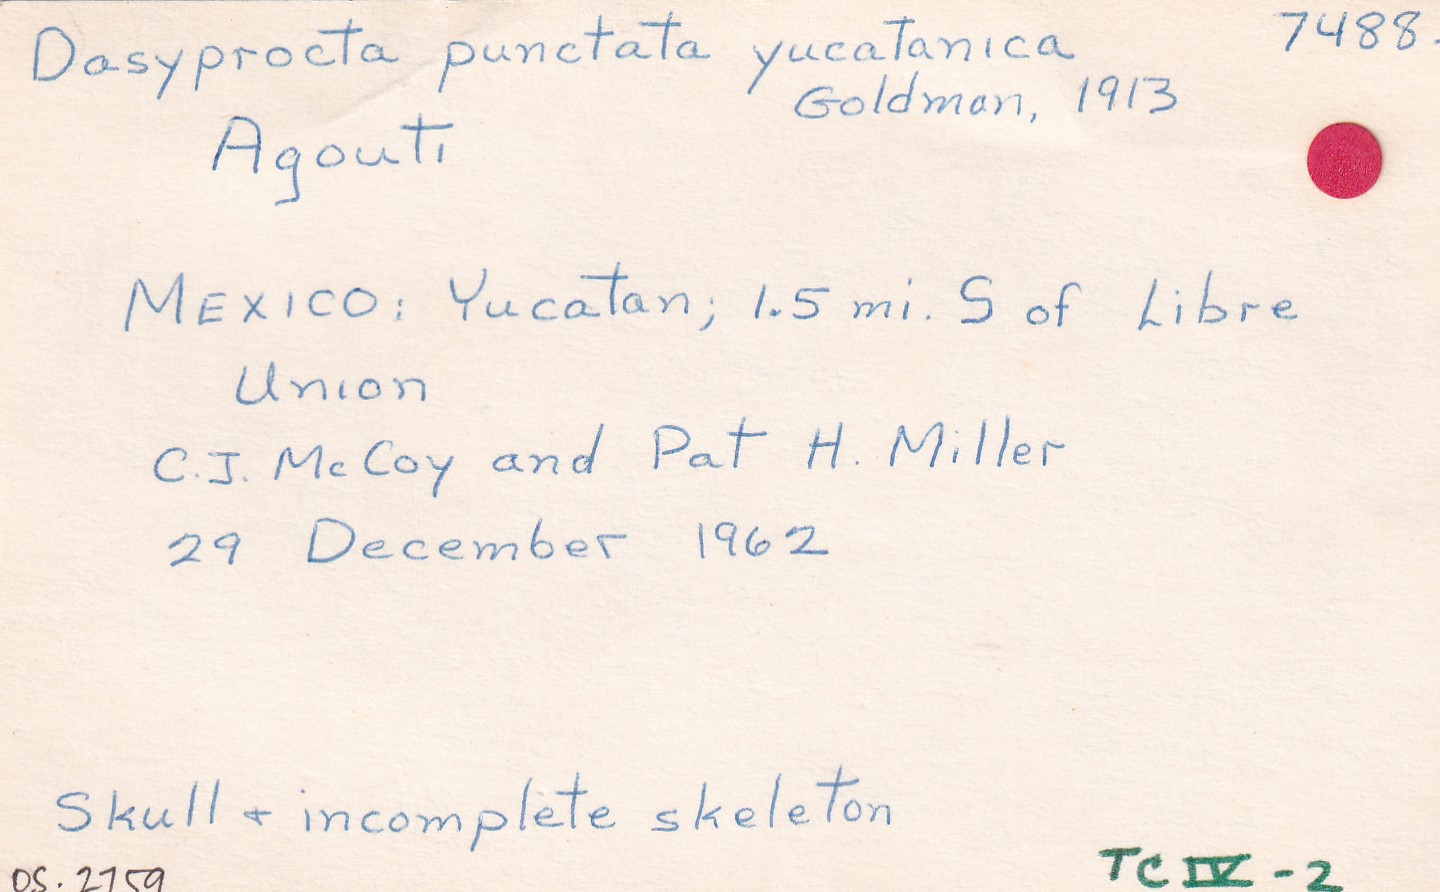 Dasyprocta punctata yucatanica 7488.
Goldman, 1913
Agouti
MEXICO: Yucatan; 1.5 mi. S of Libre
Union
C.J. McCoy and Pat H. Miller
29 December 1962
Skull + incomplete skeleton
OS. 2759
TC IV - 2